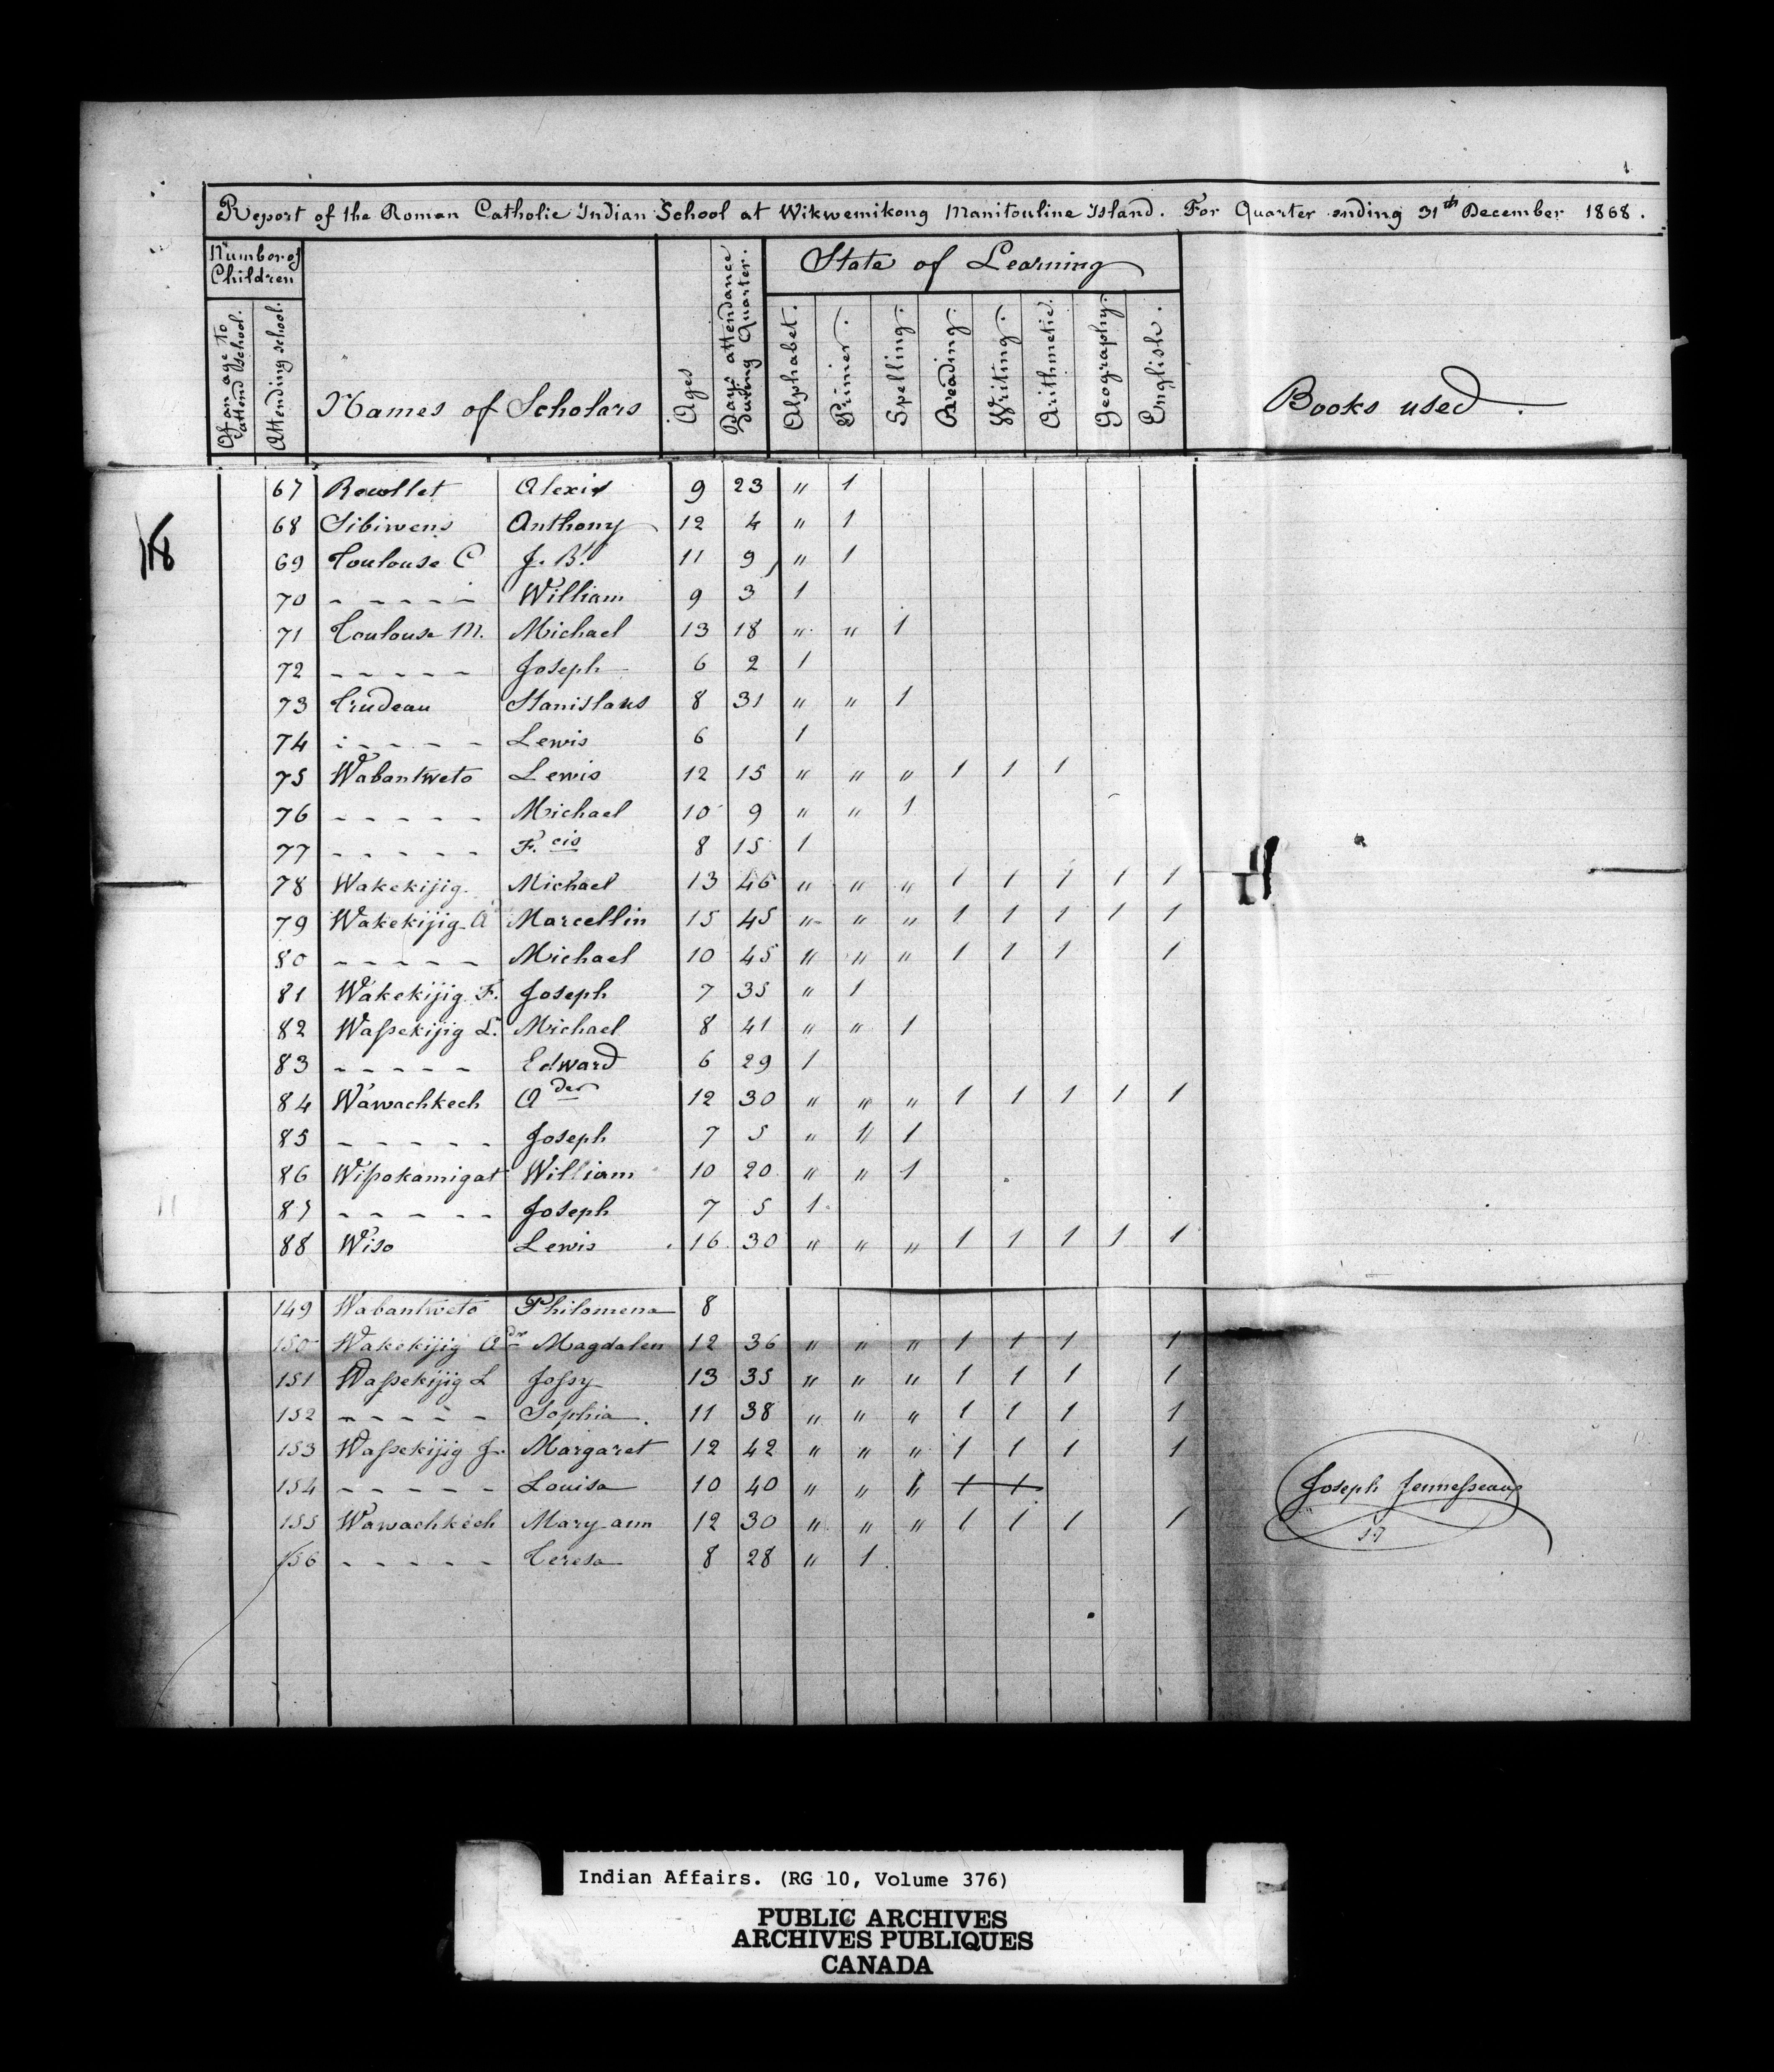 1
Report of the Roman Catholic Indian School at Wikwemikong Manitouline Island. For Quarter ending 31th December 1868.
Number of Children
State of Learning
Of an age to attend School.
Attending school.
Names of Scholars
Ages
Days attendance during Quarter.
Alphabet.
Primer.
Spelling.
Reading.
Writing.
Arithmetic.
Geography.
English.
Books used.
67 Recollet Alexis 9 23 " 1
68 Sibiwens Anthony 12 4 " 1
69 Toulouse C J. Bt 11 9 " 1
70 - - - - - William 9 3 1
71 Toulouse M. Michael 13 18 " " 1
72 - - - - - Joseph 6 2 1
73 Trudeau Stanislaus 8 31 " " 1
74 - - - - - Lewis 6 1
75 Wabantweto Lewis 12 15 " " " 1 1 1
76 - - - - - Michael 10 9 " " 1
77 - - - - - F.cis 8 15 1
78 Wakekijig Michael 13 46 " " " 1 1 1 1 1
79 Wakekijig A Marcellin 15 45 " " " 1 1 1 1 1
80 - - - - - Michael 10 45 " " " 1 1 1 1
81 Wakekijig F. Joseph 7 35 " 1
82 Waſsekijig L. Michael 8 41 " " 1
83 - - - - - Edward 6 29 1
84 Wawachkech Ader 12 30 " " " 1 1 1 1 1
85 - - - - - Joseph 7 5 " 1 1
86 Wiſsokamigat William 10 20 " " 1
87 - - - - - Joseph 7 5 1
88 Wiso Lewis 16 30 " " " 1 1 1 1 1
149 Wabantweto Philomena 8
150 Wakekijig Ader Magdalen 12 36 " " " 1 1 1 1
151 Waſsekijig L Joſsy 13 35 " " " 1 1 1 1
152 - - - - - Sophia. 11 38 " " " 1 1 1 1
153 Waſsekijig J. Margaret 12 42 " " " 1 1 1 1
154 - - - - - Louisa 10 40 " " 1 1 1
155 Wawachkech Mary ann 12 30 " " " 1 1 1 1
156 - - - - - Teresa 8 28 " 1
Joseph Jenneſseaux
Indian Affairs. (RG 10, Volume 376)
PUBLIC ARCHIVES
ARCHIVES PUBLIQUES
CANADA